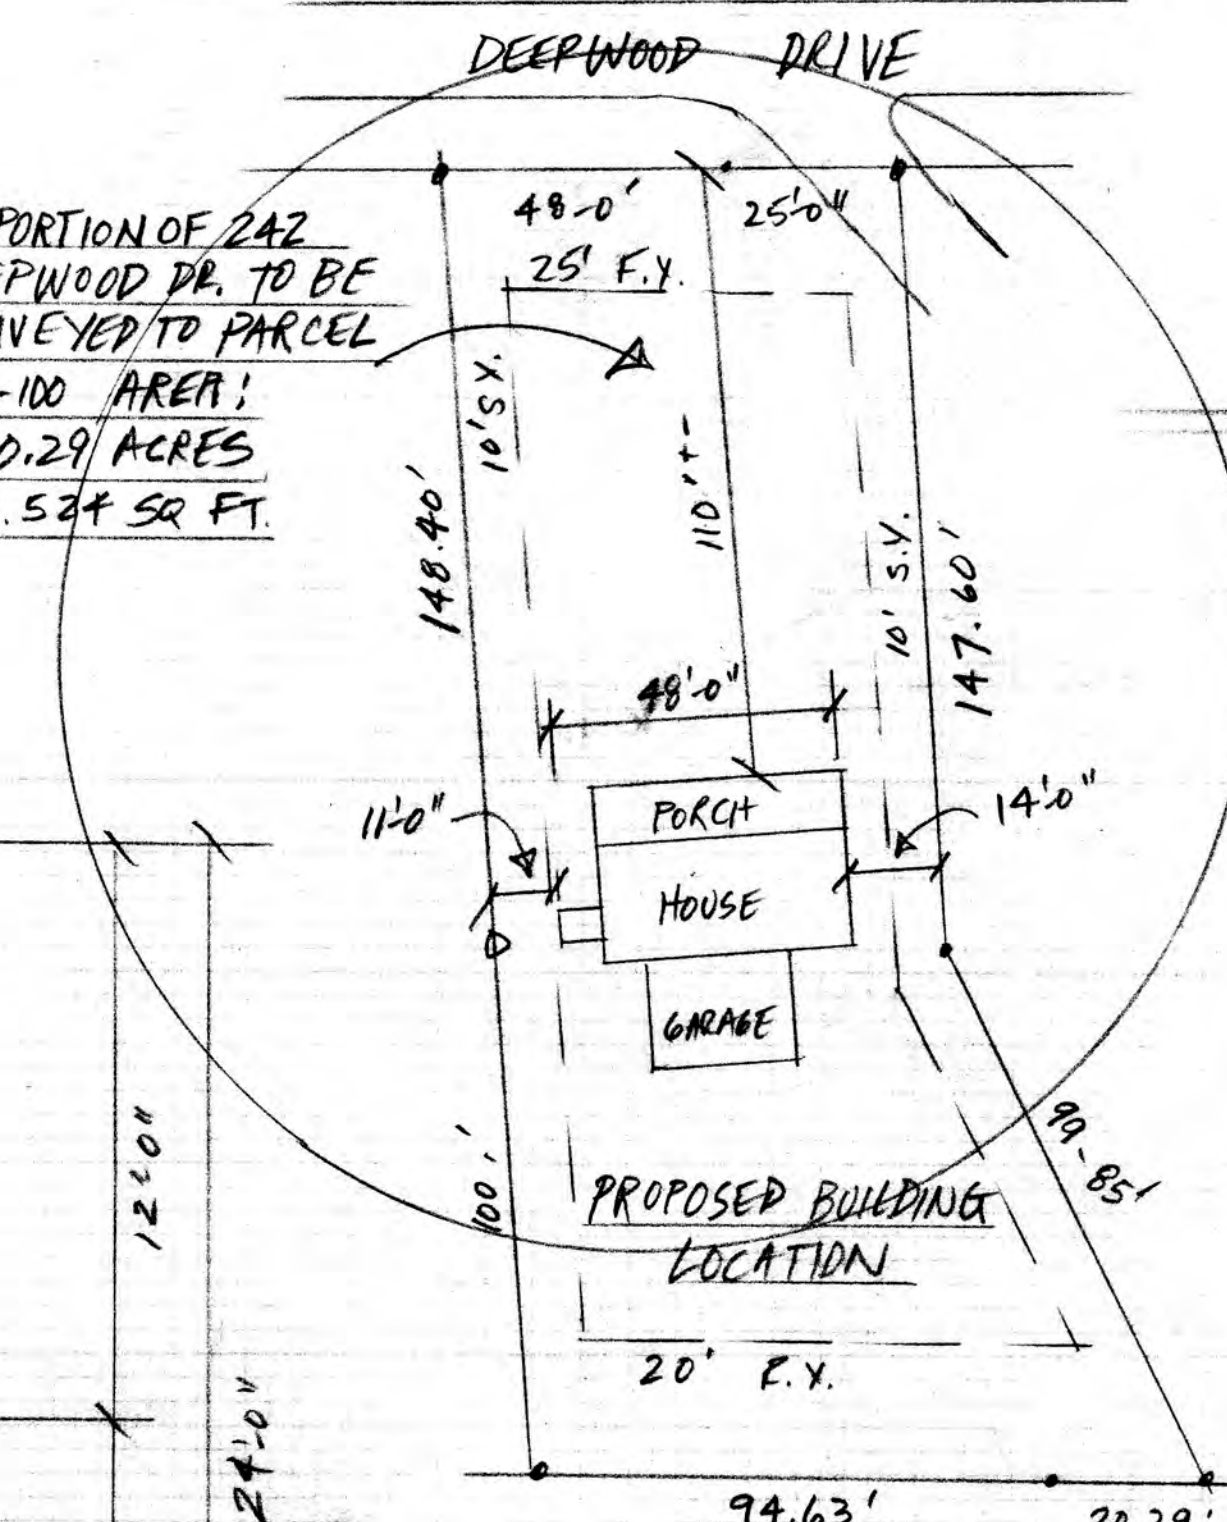 DEEPWOOD DRIVE
48-0'
25'-0"
25' F.Y.
PORTION OF 242
EPWOOD DR. TO BE
VEYED TO PARCEL
-100 AREA:
0.29 ACRES
.524 SQ FT.
10' S.Y.
148.40'
110'+-
10' S.Y.
147.60'
48'-0"
11'-0"
14'-0"
PORCH
HOUSE
GARAGE
12'-0"
24'-0"
100.'
99-85'
PROPOSED BUILDING
LOCATION
20' R.Y.
94.63'
20.29'